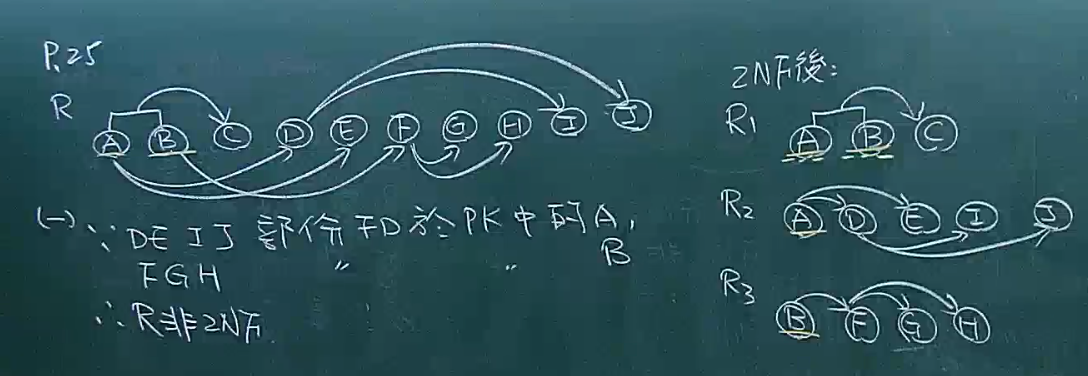 P.25
R
A B C D E F G H I J
(一) ∵ DEIJ 部份FD於PK中的A,
FGH 〃 〃 B
∴ R非2NF
2NF後:
R1
A B C
R2
A D E I J
R3
B F G H